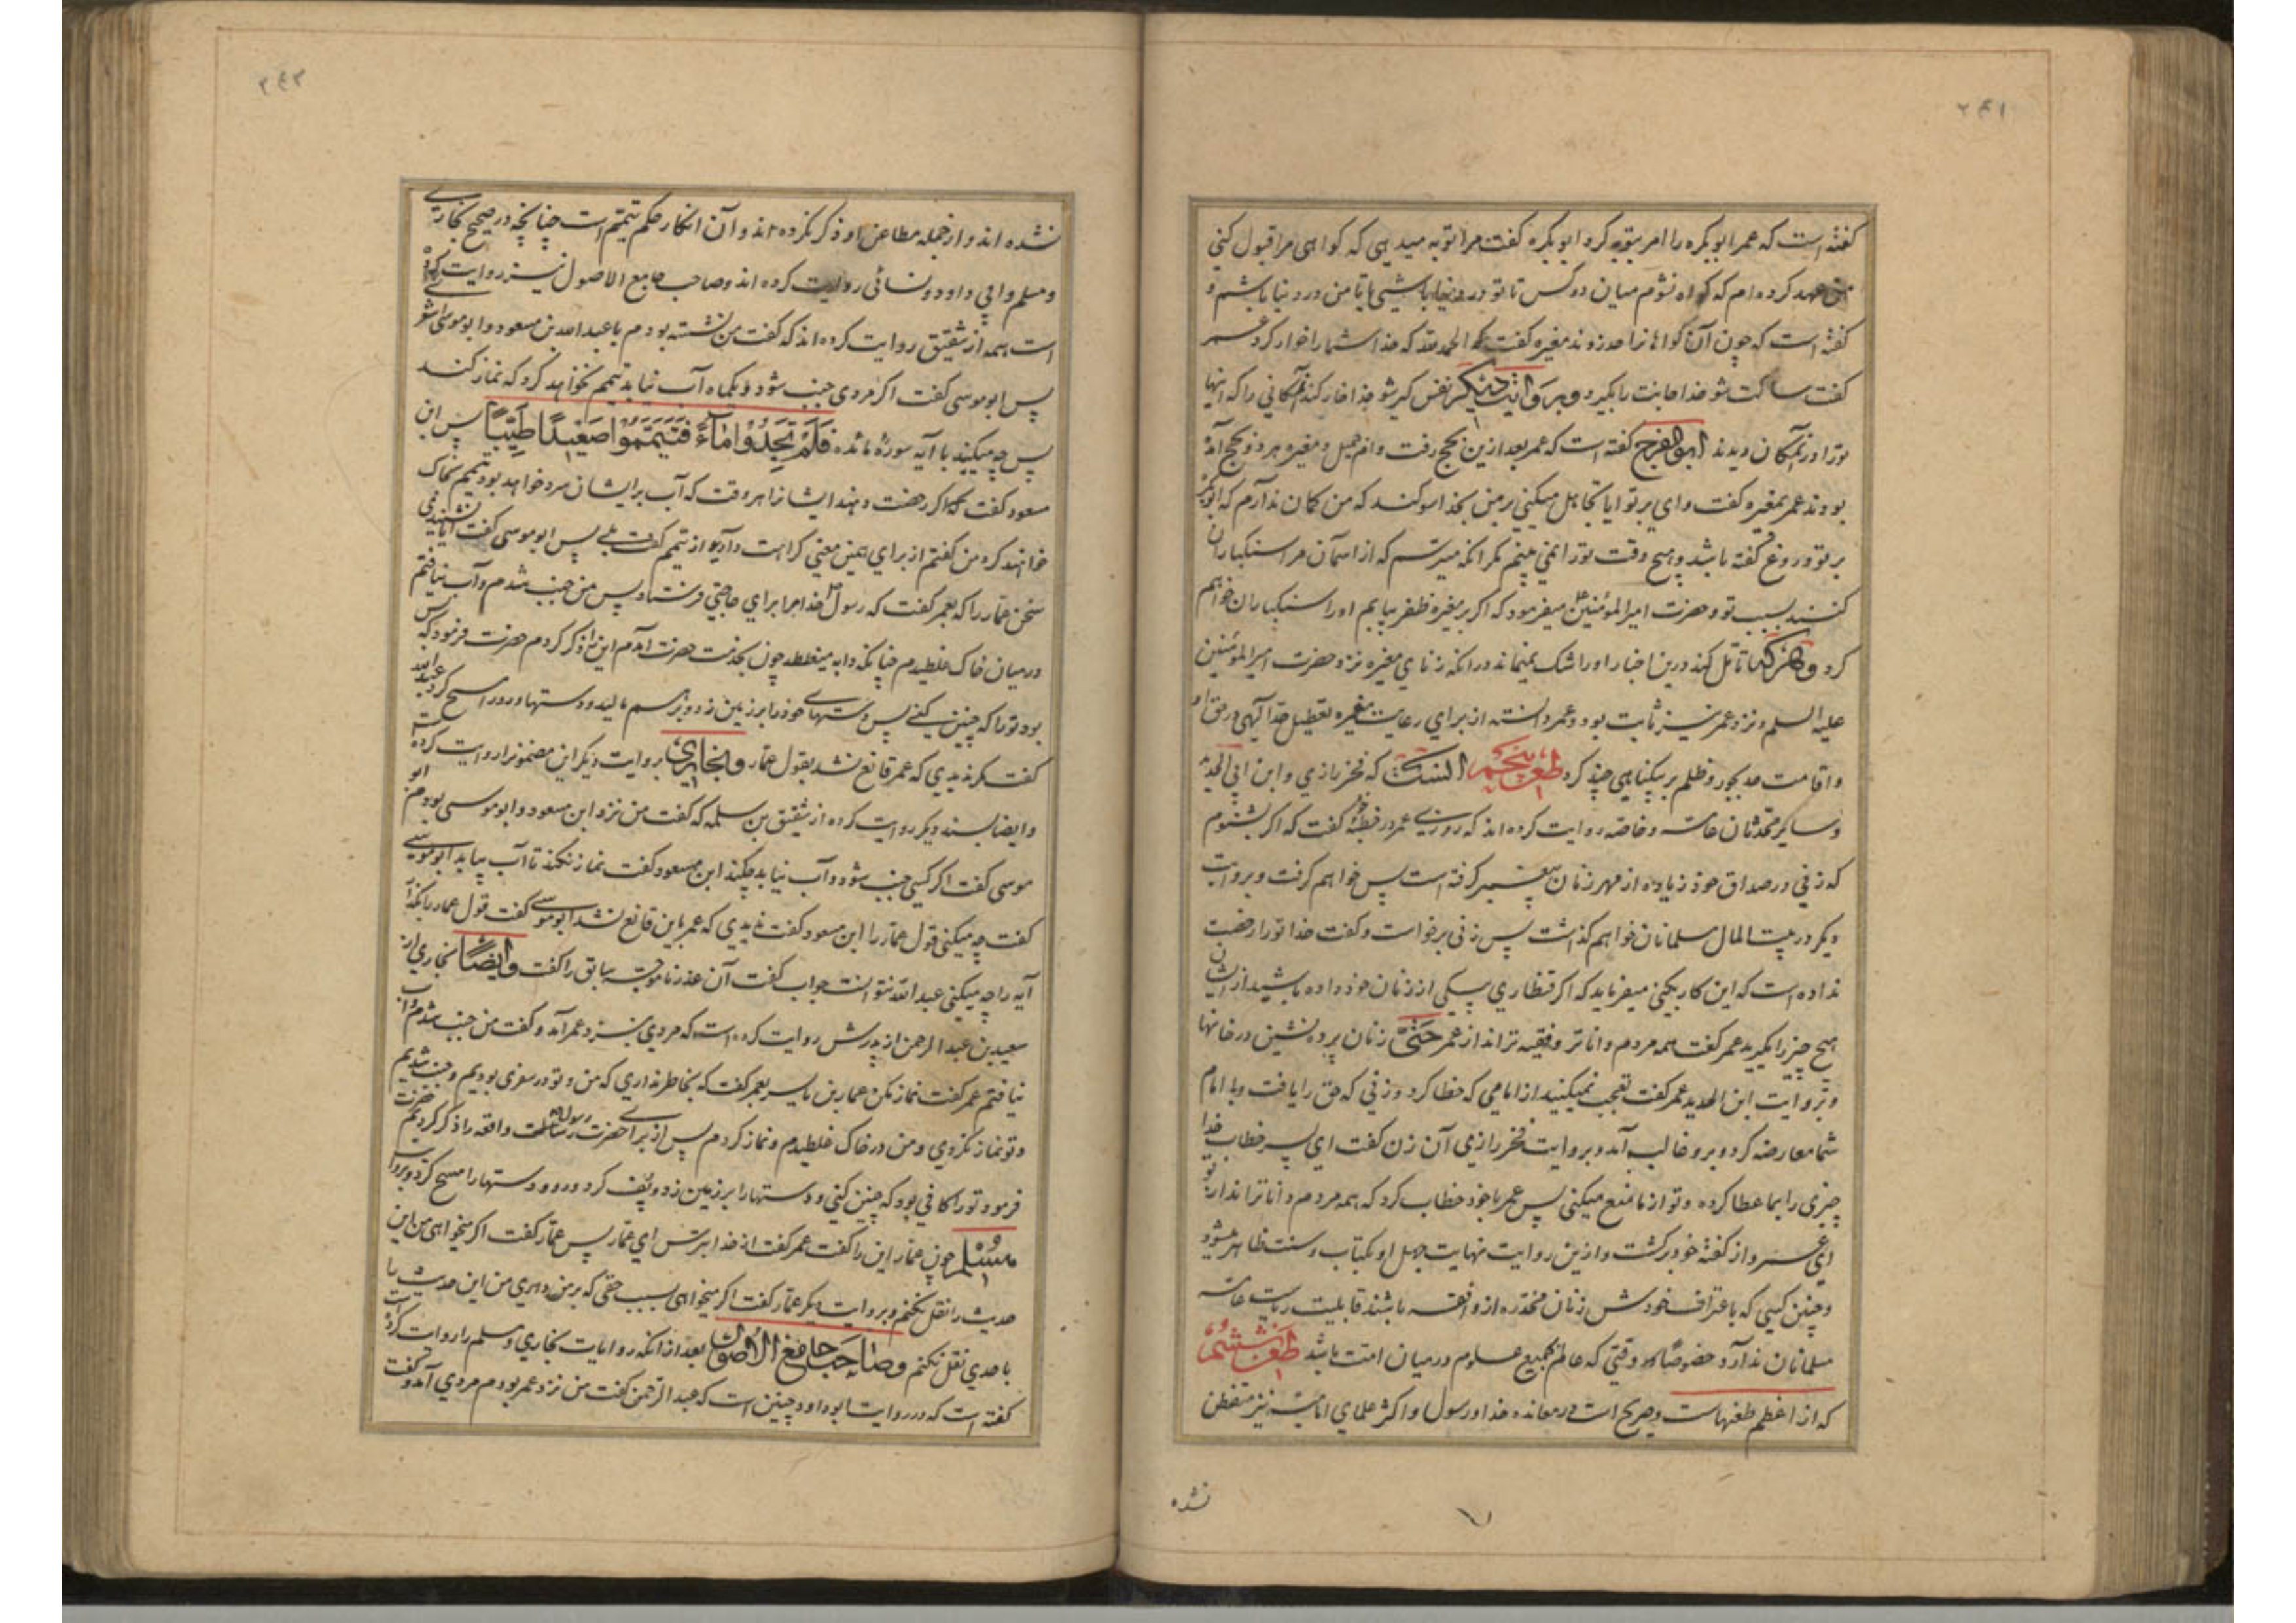 ۲۴۱
گفته است که عمر ابوبکره را امر بتوبه کرد ابوبکره گفت مرا توبه میدهی که گواهی مرا قبول کنی
من عهد کرده ام که گواه نشوم میان دو کس تا تو در دنیا باشی یا تا من در دنیا باشم و
گفته است که چون آن گواهانرا حد زدند مغیره گفت که الحمد لله که خدا شما را خوار کرد عمر
گفت ساکت شو خدا جایت را بگیرد و بروایت دیگر نفس گیر شو خدا خار کند مکانی را که اینها
ترا در آن مکان دیدند ابوالفرج گفته است که عمر بعد ازین بحج رفت و ام جمیل و مغیره هر دو بحج آمده
بودند عمر بمغیره گفت وای بر تو ایا تجاهل میکنی بر من بخدا سوکند که من کمان ندارم که ابوبکره
بر تو دروغ گفته باشد و هیچ وقت ترا نمی بینم مکر انکه میترسم که از اسمان مرا سنکباران
کنند بسبب تو و حضرت امیرالمؤمنین میفرمود که اکر بر مغیره ظفر بیابم او را سنکباران خواهم
کرد و هر که تامّل کند درین اخبار او را شک نمیماند در انکه زنای مغیره نزد حضرت امیرالمؤمنین
علیه السلم و نزد عمر نیز ثابت بود و عمر دانسته از برای رعایت مغیره تعطیل حدّ الهی در حق او
و اقامت حد بجور و ظلم بر بیکناهی چند کرد طعن پنجم انست که فخر رازی و ابن ابی الحدید
و سایر محدثان عامّه و خاصّه روایت کرده اند که روزی عمر در خطبه خود گفت که اکر بشنوم
که زنی در صداق خود زیاده از مهر زنان پیغمبر گرفته است پس خواهم گرفت و بروایت
دیگر در بیت المال مسلمانان خواهم گذاشت پس زنی برخواست و گفت خدا ترا رخصت
نداده است که این کار بکنی میفرماید که اکر قنطاری بیکی از زنان خود داده باشید از ایشان
هیچ چیز را مگیرید عمر گفت همه مردم داناتر و فقیه تر اند از عمر حتّی زنان پرده نشین در خانها
و بروایت ابن الحدید عمر گفت تعجب نمیکنید از امامی که خطا کرد و زنی که حق را یافت و با امام
شما معارضه کرد و برو غالب آمد و بروایت فخر رازی آن زن گفت ای پسر خطاب خدا
چیزی را بما عطا کرده و تو از ما منع میکنی پس عمر با خود خطاب کرد که همه مردم داناتر اند از تو
ای عمر و از گفته خود برگشت و ازین روایت نهایت جهل او بکتاب و سنت ظاهر میشود
و چنین کسی که باعتراف خودش زنان مخدّره ازو افقه باشند قابلیت ریاست عامّه
مسلمانان ندارد خصوصا در وقتی که عالم بجمیع علوم در میان امت باشد طعن ششم
که از اعظم طعنهاست و صریح است در معانده خدا و رسول و اکثر علمای امامیّه نیز متفطن
نشده
۲۴۲
نشده اند و از جمله مطاعن او ذکر نکرده اند و آن انکار حکم تیمّم است چنانچه در صحیح بخاری
و مسلم و ابی داود و نسائی روایت کرده اند و صاحب جامع الاصول نیز روایت کرده
است همه از شقیق روایت کرده اند که گفت من نشسته بودم با عبدالله بن مسعود و ابو موسی اشعری
پس ابو موسی گفت اکر مردی جنب شود و یکماه آب نیابد تیمم نخواهد کرد که نماز کند
پس چه میکنید با آیه سورهٔ مائده فَلَمْ تَجِدُوا مَاءً فَتَيَمَّمُوا صَعِيدًا طَيِّبًا پس ابن
مسعود گفت که اکر رخصت دهند ایشانرا هر وقت که آب بر ایشان سرد خواهد بود تیمم بخاک
خواهند کرد من گفتم از برای همین معنی کراهت دارید از تیمم گفت بلی پس ابو موسی گفت ایا نشنیدی
سخن عمّار را که بعمر گفت که رسول خدا مرا برای حاجتی فرستاد پس من جنب شدم و آب نیافتم
در میان خاک غلطیدم چنانکه دابه میغلطد چون بخدمت حضرت آمدم این را ذکر کردم حضرت فرمود که بس
بود ترا که چنین کنی پس دستهای خود را بر زمین زد و بر هم مالید و دستها و رو را مسح کرد عبدالله
گفت مکر ندیدی که عمر قانع نشد بقول عمّار و بخاری بروایت دیگر این مضمونرا روایت کرده است
و ایضا بسند دیگر روایت کرده از شقیق بن سلمه که گفت من نزد ابن مسعود و ابو موسی بودم ابو
موسی گفت اکر کسی جنب شود و آب نیابد چکند ابن مسعود گفت نماز نکند تا آب بیابد ابو موسی
گفت چه میکنی قول عمّار را ابن مسعود گفت ندیدی که عمر باین قانع نشد ابو موسی گفت قول عمار را بگذار
آیه را چه میکنی عبدالله نتوانست جواب گفت آن عذر ناموجّه سابق را گفت و ایضًا بخاری از
سعید بن عبدالرحمن از پدرش روایت کرده است که مردی نزد عمر آمد و گفت من جنب شدم و آب
نیافتم عمر گفت نماز مکن عمار بن یاسر بعمر گفت که بخاطر نداری که من و تو در سفری بودیم و جنب شدیم
و تو نماز نکردی و من در خاک غلطیدم و نماز کردم پس از برای حضرت رسول واقعه را ذکر کردم حضرت
فرمود ترا کافی بود که چنین کنی و دستها را بر زمین زد و پف کرد و رو و دستها را مسح کرد و بروایت
مسلم چون عمّار این را گفت عمر گفت از خدا بترس ای عمّار پس عمّار گفت اکر میخواهی من این
حدیث را نقل نکنم و بروایت دیگر عمّار گفت اکر میخواهی بسبب حقی که بر من داری من این حدیث را
با احدی نقل نکنم و صاحب جامع الاصول بعد از انکه روایات بخاری و مسلم را روایت کرده است
گفته است که در روایت ابو داود چنین است که عبدالرّحمن گفت من نزد عمر بودم مردی آمد و گفت